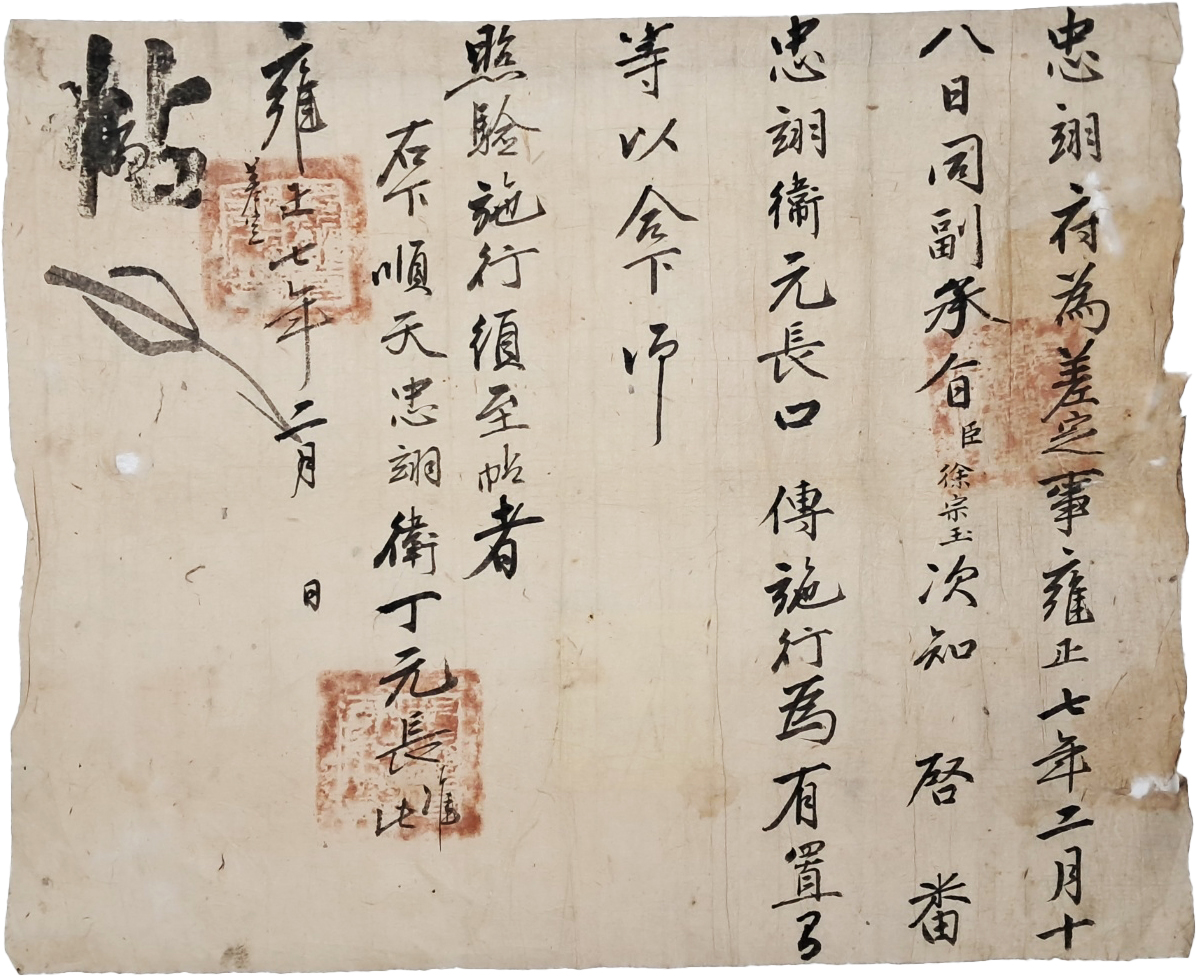 忠翊府為差定事雍正七年二月十
八日同副承旨臣徐宗玉次知 啓 番
忠翊衛元長口 傳施行為有置
等以合下仰
照驗施行須至帖者
右下順天忠翊衛丁元長 准此
雍正七年二月 日
差定
帖